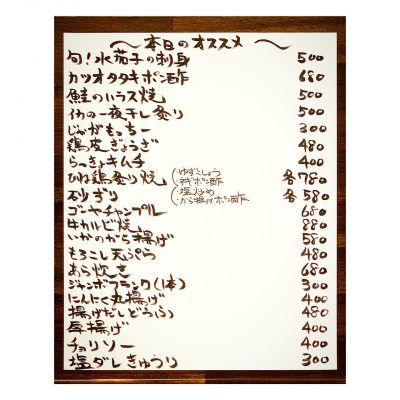 〜本日のオススメ〜
旬!水茄子の刺身 500
カツオタタキポン酢 680
鮭のハラス焼 500
イカの一夜干し炙り 500
じゃがもっちー 300
鶏皮ぎょうざ 480
らっきょキムチ 400
ひね鶏炙り焼 (ゆずこしょう ・ポン酢 各780
砂ずり (・塩炒め ・から揚げポン酢 各580
ゴーヤチャンプル 680
牛カルビ焼 880
いかのから揚げ 580
もろこし天ぷら 480
あら炊き 680
ジャンボフランク(1本) 300
にんにく丸揚げ 400
揚げだしどうふ 480
揚げ 400
チョリソー 400
塩ダレきゅうり 300